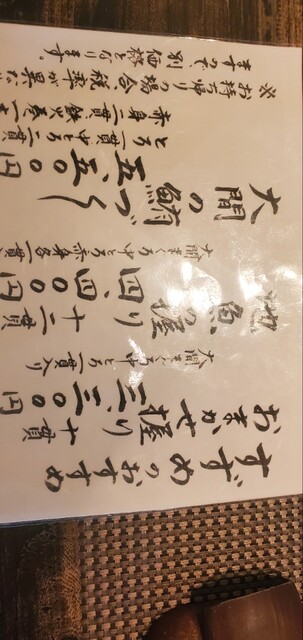 すずめのおすすめ
おまかせ握り 十貫
三、三〇〇円
大間まぐろ中とろ一貫入り
魚の屋
握り 十二貫
四、四〇〇円
大間まぐろ中とろ赤身各一貫
大間の鮪づくし
五、五〇〇円
とろ一貫 中とろ二貫
赤身二貫 鉄火巻一本
※お持ち帰りの場合税率が異な
ますので、別価格となります。